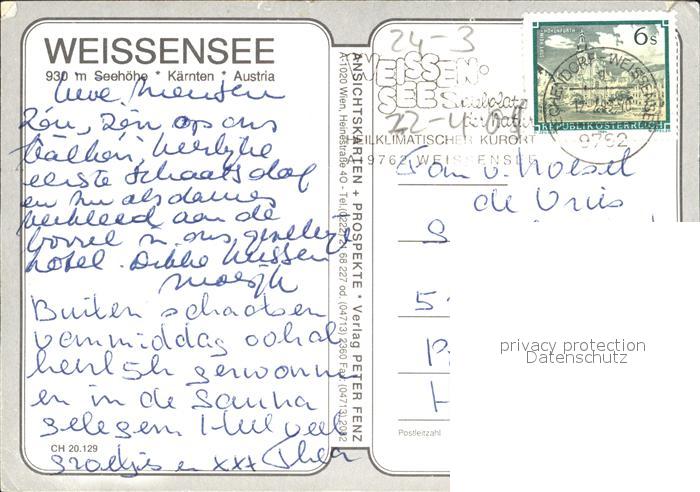 WEISSENSEE
930 m Seehöhe * Kärnten * Austria
Lieve Mensen
Zon, Zon op ons
balkon, heerlijke
eerste schaatsdag
en nu als dames
verkleed aan de
borrel in ons gezellig
hotel. Dikke kussen
Buiten schaatsen
vanmiddag ook al
heerlijk gewonnen
en in de sauna
gelegen. Heel veel
groetjes en xxx Thea
CH 20.129
ANSICHTSKARTEN + PROSPEKTE * Verlag PETER FENZ
A-1020 Wien, Heinestraße 40 - Tel. (0222) 21 68 227 od. (04713) 2360 Fax: (04713) 2082
24-3
WEISSEN-
SEE
22-4
HEILKLIMATISCHER KURORT
A 9762 WEISSENSEE
STIFT REIN-HOHENFURTH
6 S
REPUBLIK ÖSTERREICH
TECHENDORF-WEISSENSEE
9762
Fam v. Hoesel
de Vries
S
5
P
H
Postleitzahl
privacy protection
Datenschutz